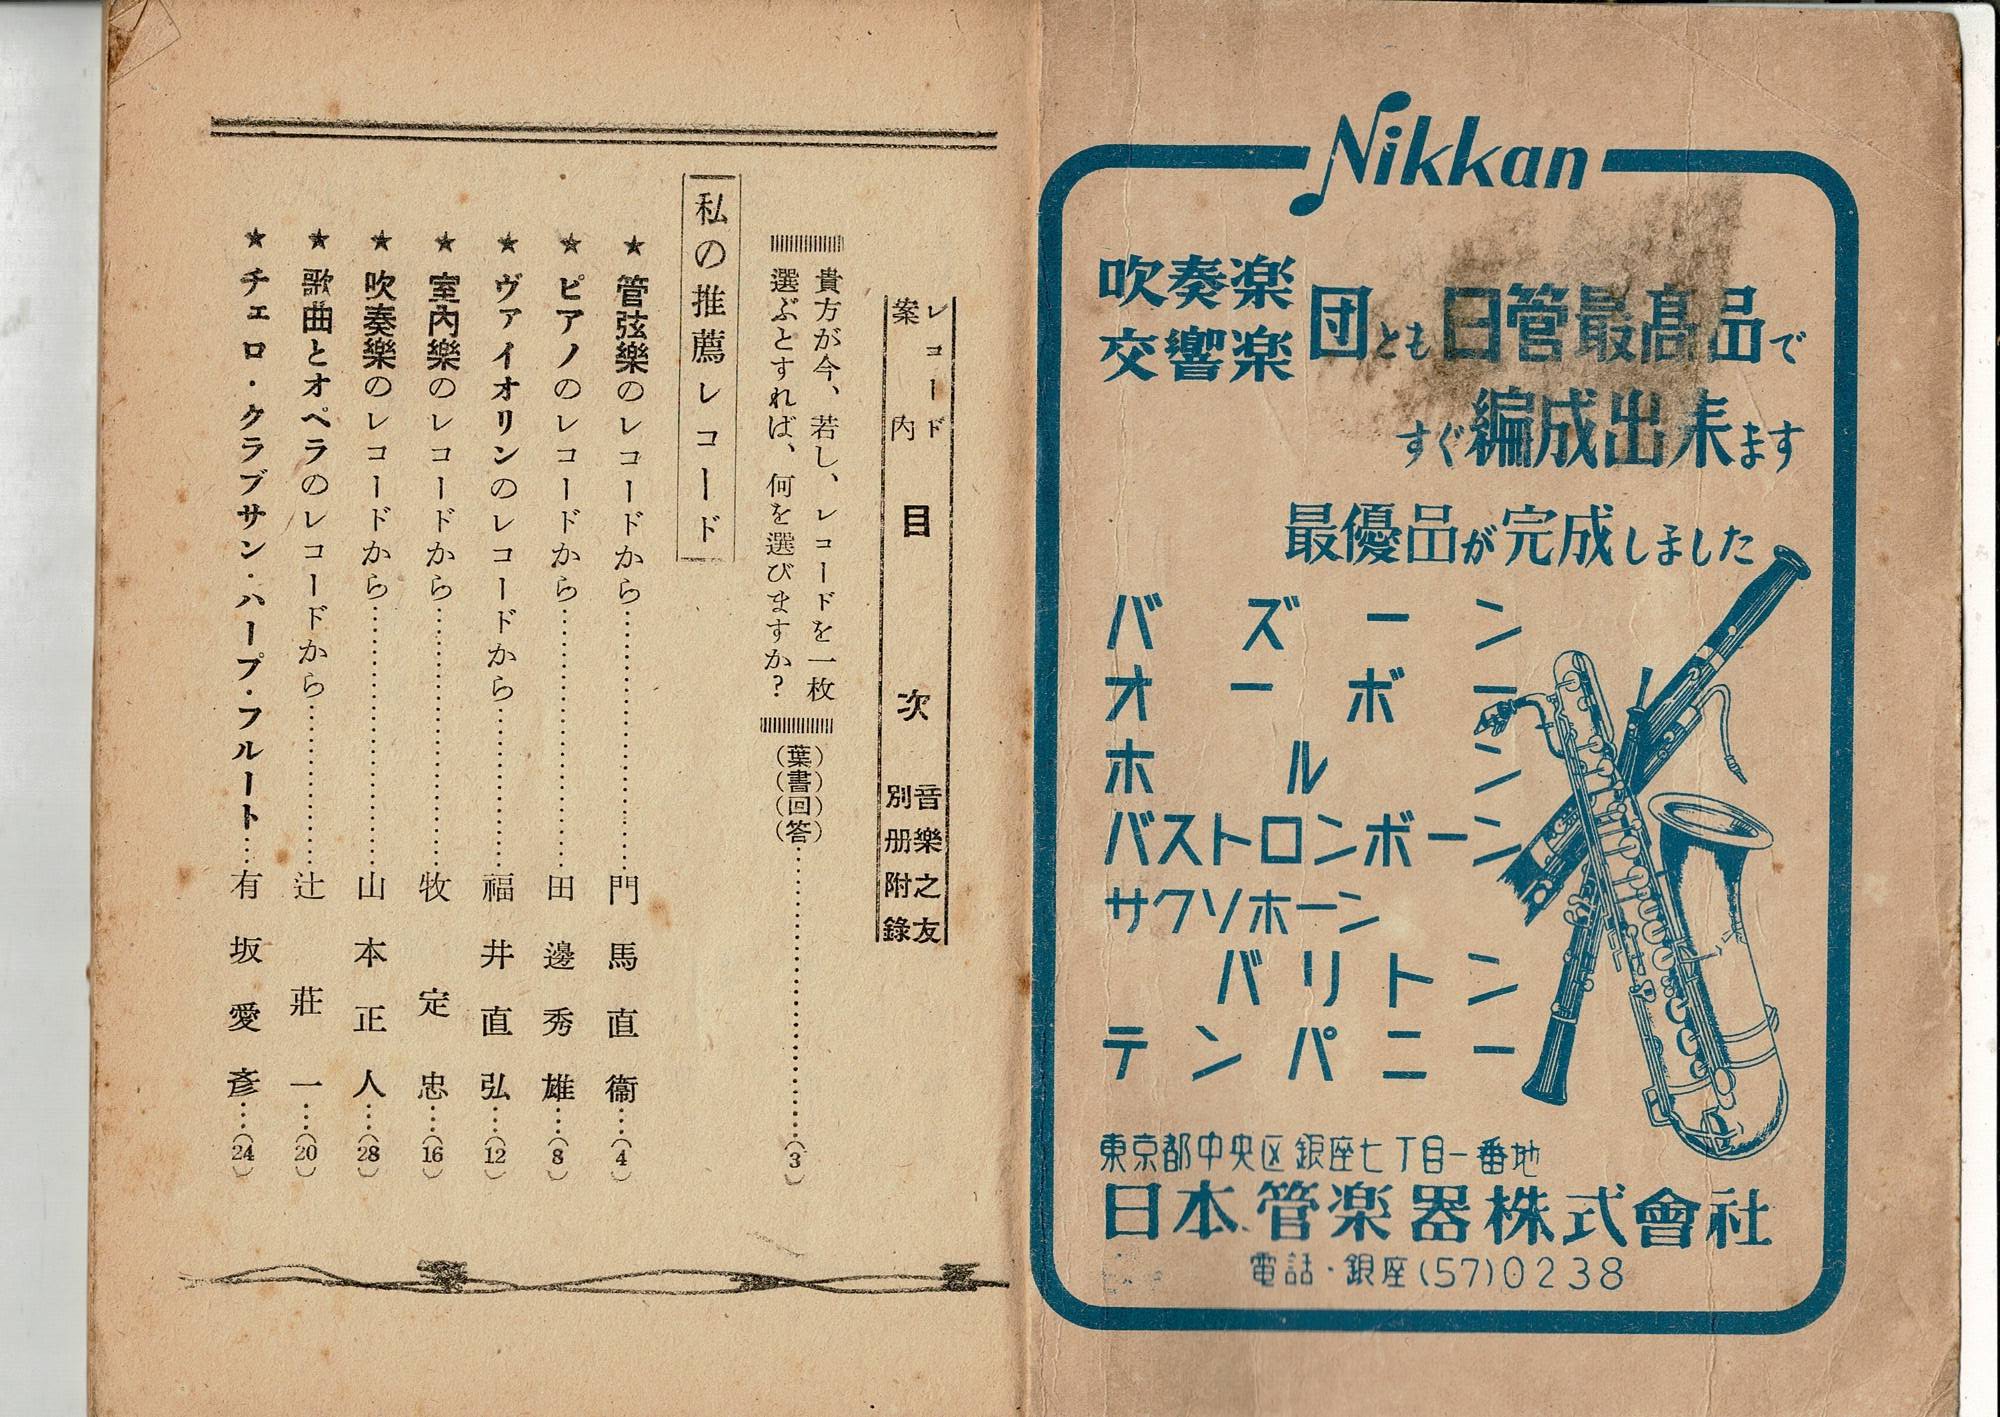 Nikkan
吹奏楽
交響楽
団とも日管最高品で
すぐ編成出来ます
最優品が完成しました
バズーン
オーボー
ホルン
バストロンボーン
サクソホーン
バリトン
テンパニー
東京都中央区銀座七丁目一番地
日本管楽器株式會社
電話・銀座(57)0238
レコード
案内
目次
音樂之友
別册附錄
貴方が今、若し、レコードを一枚
選ぶとすれば、何を選びますか?
(葉)(書)(回)(答)……(3)
私の推薦レコード
★管弦樂のレコードから……門馬直衞……(4)
★ピアノのレコードから……田邊秀雄……(8)
★ヴァイオリンのレコードから……福井直弘……(12)
★室內樂のレコードから……牧定忠……(16)
★吹奏樂のレコードから……山本正人……(28)
★歌曲とオペラのレコードから……辻莊一……(20)
★チェロ・クラブサン・ハープ・フルート……有坂愛彥……(24)